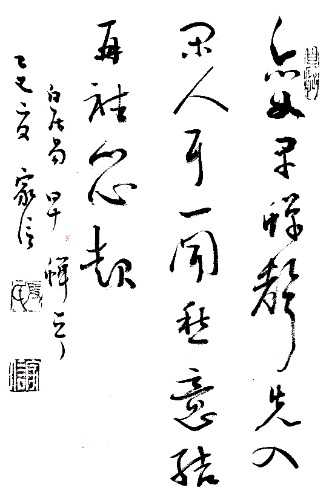 亦如早蟬聲先入
閑人耳一聞愁意結
再聽鄉心起
白居易早蟬
乙巳夏家信